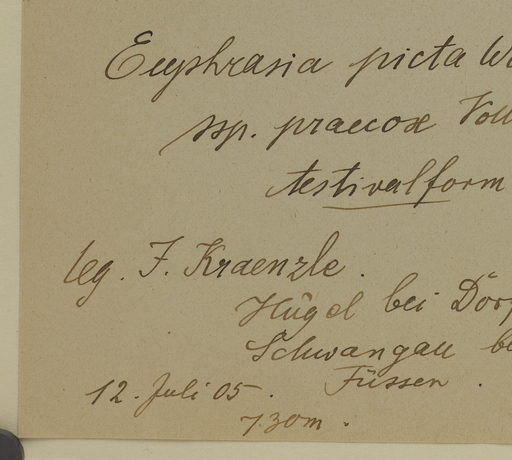 Euphrasia picta W
ssp. praecox Voll
Aestivalform
leg. J. Kraenzle.
Hügel bei Dörf
Schwangau be
Füssen.
12. Juli 05.
730m.